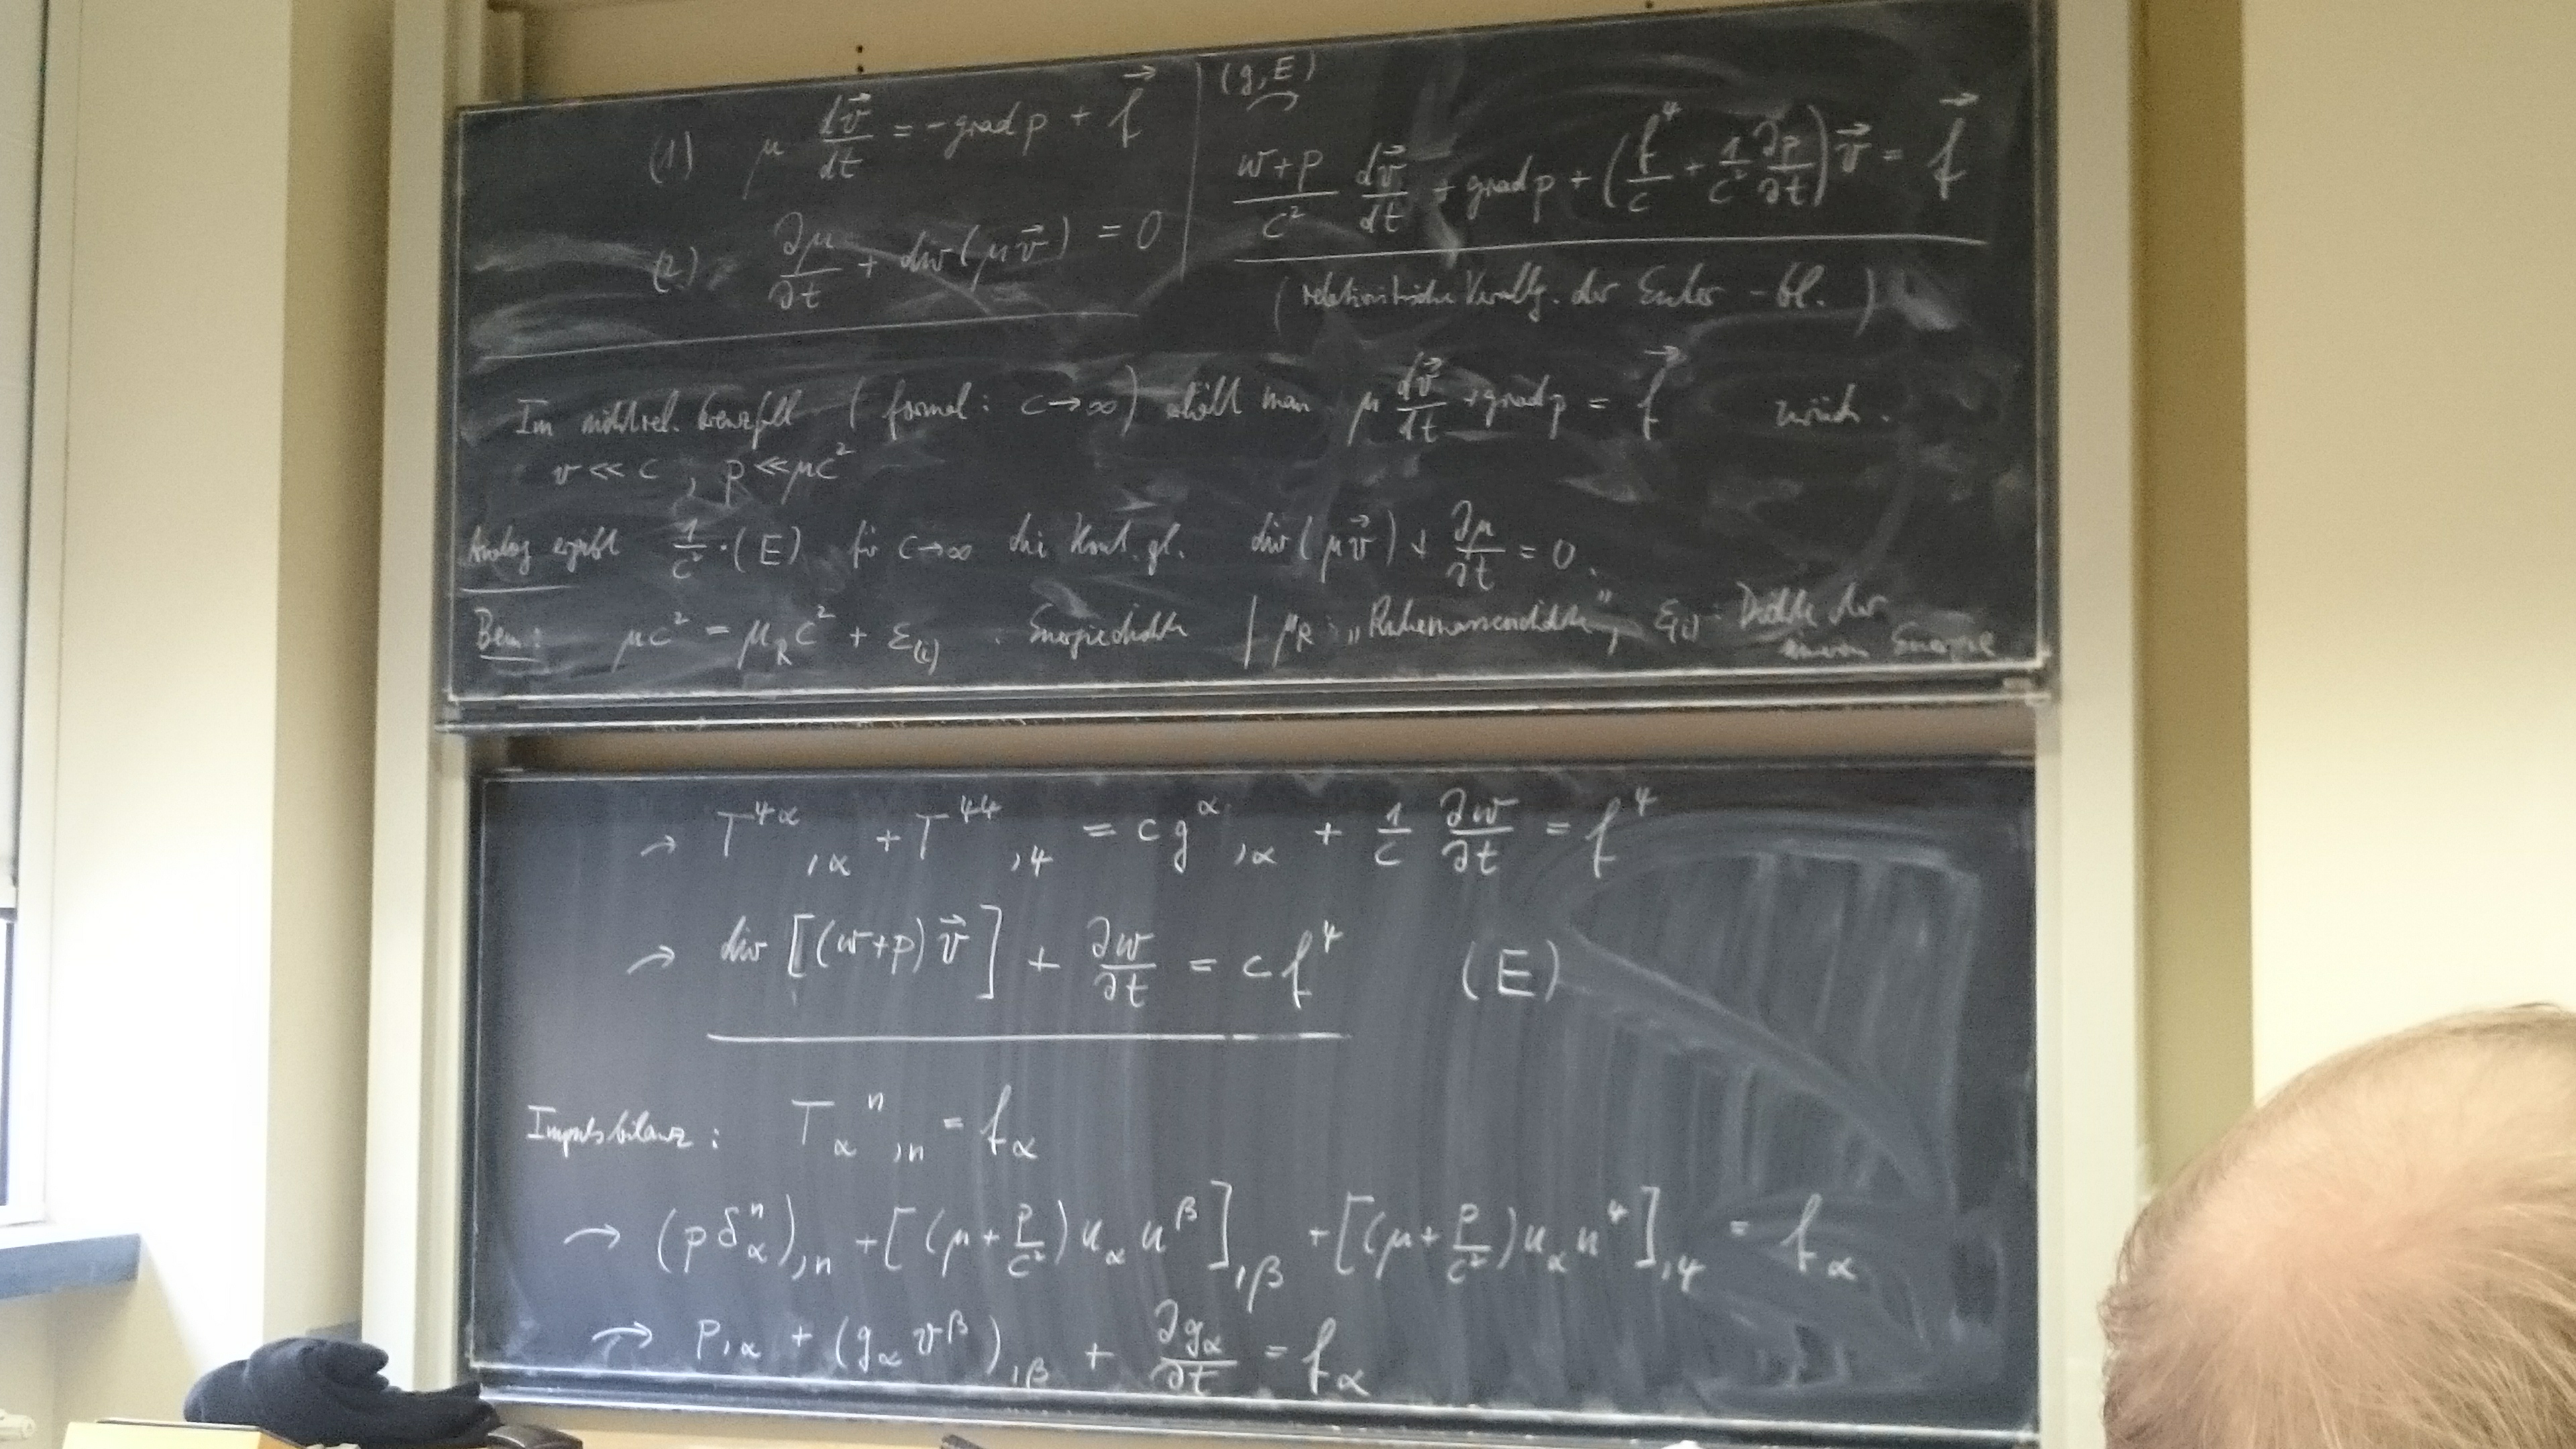 (1) μ dv⃗/dt = - grad p + f⃗
(2) ∂μ/∂t + div (μ v⃗) = 0
(g, E)
(w+p)/c² dv⃗/dt + grad p + (f⁴/c + 1/c² ∂p/∂t) v⃗ = f⃗
(relativistische Verallg. der Euler - Gl.)
Im nichtrel. Grenzfall (formal: c→∞) erhält man μ dv⃗/dt + grad p = f⃗ zurück.
v ≪ c, p ≪ μc²
Analog ergibt 1/c² · (E) für c→∞ die Kont. gl. div (μ v⃗) + ∂μ/∂t = 0.
Bem.: μc² = μ_R c² + ε_(i) : Energiedichte | μ_R : „Ruhemassendichte", ε_(i) : Dichte der
inneren Energie
→ T^{4α}_{,α} + T^{44}_{,4} = c g^α_{,α} + 1/c ∂w/∂t = f⁴
→ div [(w+p) v⃗] + ∂w/∂t = c f⁴ (E)
Impulsbilanz: T_α^n_{,n} = f_α
→ (p δ_α^n)_{,n} + [(μ + p/c²) u_α u^β]_{,β} + [(μ + p/c²) u_α u⁴]_{,4} = f_α
→ p_{,α} + (g_α v^β)_{,β} + ∂g_α/∂t = f_α